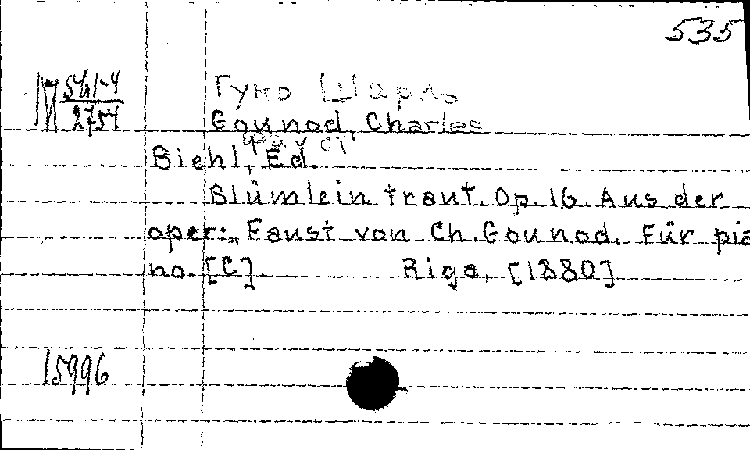 535
М 561-4
2754
Гуно Шарль
Gounod, Charles
Фауст
Biehl, Ed.
Blümlein traut. Op. 16. Aus der
oper: „Faust von Ch. Gounod. Für pia
no. [C] Riga, [1880]
15996